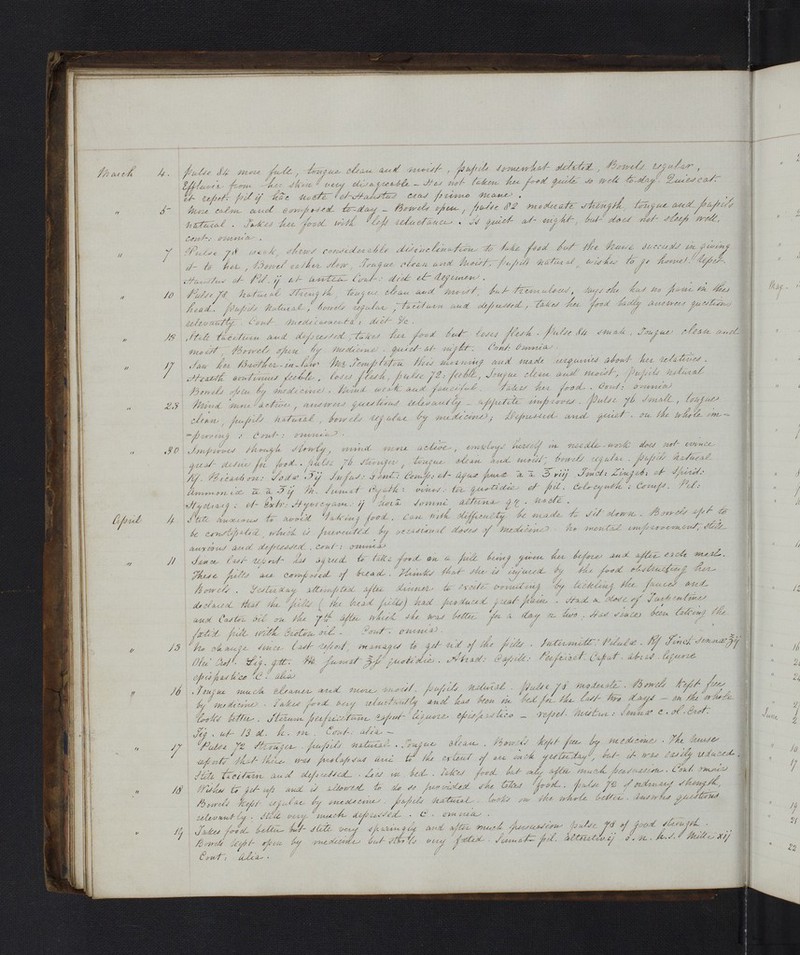 March 4. Pulse 84 more full, tongue clean and moist, pupils somewhat dilated, Bowels regular,
Effluvia from her skin very disagreeable - Has not taken her food quite so well to-day. Quiescat
et repet. pil ij hac nocte et Haustus cras primo mane.
" 5 More calm and composed to-day - Bowels open, pulse 82 moderate strength, tongue and pupils
natural. Takes her food with less reluctance. Is quiet at night, but does not sleep well.
cont: omnia.
" 7 Pulse 78 weak, shews considerable disinclination to take food but the Nurse succeeds in giving
it to her, Bowels rather slow, Tongue clean and moist, pupils natural, wishes to go home. Repet.
Haustus et Pil. ij ut antea Cont: diet et Regimen.
" 10 Pulse 78 natural strength, tongue clean and moist, but tremulous, says she has no pain in her
head. Pupils natural, bowels regular, taciturn and depressed, takes her food badly answers questions
relevantly Cont medicamenta, diet &c.
" 13 Still taciturn and depressed, takes her food but loses flesh. Pulse 84 small. Tongue clean and
moist, Bowels open by medicine. quiet at night. Cont omnia
" 17 Saw her Brother-in-law Mr Templeton this morning and made inquiries about her relatives.
Health continues feeble, loses flesh, pulse 72, feeble, Tongue clean and moist, pupils natural
Bowels open by medicine. Mind weak and fanciful. Takes her food. Cont: omnia
" 23 Mind more active, answers questions relevantly - appetite improves. Pulse 76 small, tongue
clean, pupils natural, bowels regular by medicine, Depressed and quiet. on the whole im-
-proving: cont: omnia.
" 30 Improves though slowly, mind more active, employs herself in needle work does not evince
great desire for food. pulse 76 stronger, tongue clean and moist, bowels regular. pupils natural
Rx. Bicarbon: Sodae ʒij Infus: Gent: Comp: et aquae purae a a ℥viij Tinct: Zingib: et Spirit:
Ammoniae a a ʒij M. Sumat Cyath: vinos: ter quotidie et pil: Colocynth: Comp. Pil:
Hydrarg. et Extr: Hyoscyam: ij hora somni alterna q. nocte.
April 4 Still anxious to avoid taking food. Can with difficulty be made to sit down. Bowels apt to
be constipated, which is prevented by occasional doses of medicine. No mental improvement, still
anxious and depressed. cont: omnia
" 11 Since last report has agreed to take food on a pill being given her before and after each meal.
These pills are composed of bread. Thinks that she is injured by the food obstructing her
Bowels. Yesterday attempted after dinner to excite vomiting by tickling the fauces and
declared that the pills (the bread pills) had produced great pain. Had a dose of Turpentine
and Castor Oil on the 7th after which she was better for a day or two. Has since been taking the
foetid pill with Croton oil. Cont. omnia
" 13 No change since last report, manages to get rid of the pills. Intermitt: Pilulae. Rx Tinct. Sennae ʒij
Olei Crot. Tig. gtt. M. Sumat quotidie. Abrad: Capill: Perfricet: Caput. abras. liquore
epispastico C. alia
" 16 Tongue much cleaner and more moist, pupils natural. Pulse 78 moderate. Bowels kept free
by medicine. Takes food very reluctantly and has been in bed for the last two days - on the whole
looks better. Iterum perfricetur caput liquore epispastico - repet. Mistur: Sennae c. ol. Crot.
Tig. ut 13 d. h. m. Cont. alia -
" 17 Pulse 72 stronger, pupils natural. Tongue clean. Bowels kept free by medicine. The Nurse
reports that there was prolapsus ani to the extent of an inch yesterday, but it was easily reduced.
Still taciturn and depressed. Lies in bed. takes food but only after much persuasion. Cont. omnia
" 18 Wishes to get up and is allowed to do so provided she takes food. pulse 72 of ordinary strength.
Bowels kept regular by medicine. pupils natural. looks on the whole better. answers questions
relevantly. Still very much depressed. C. omnia.
" 19 Takes food better but still very sparingly and after much persuasion pulse 78 of good strength.
Bowels kept open by medicine but stools very foetid. Sumat pil. alterativ ij o. n. h.s. Mitte xij
Cont: alia.
May
June